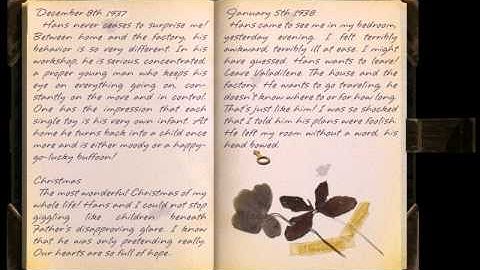 December 8th 1937
Hans never ceases to surprise me!
Between home and the factory, his
behavior is so very different. In his
workshop, he is serious, concentrated,
a proper young man who keeps his
eye on everything going on, con-
stantly on the move and in control.
One has the impression that each
single toy is his very own infant. At
home he turns back into a child once
more and is either moody or a happy-
go-lucky buffoon!
Christmas
The most wonderful Christmas of my
whole life! Hans and I could not stop
giggling like children beneath
Father's disapproving glare. I know
that he was only pretending really.
Our hearts are so full of hope.
January 5th 1938
Hans came to see me in my bedroom,
yesterday evening. I felt terribly
awkward, terribly ill at ease. I might
have guessed. Hans wants to leave!
Leave Valadilene. The house and the
factory. He wants to go traveling, he
doesn't know where to or for how long.
That's just like him! I was so shocked
that I told him his plans were foolish.
He left my room without a word, his
head bowed.